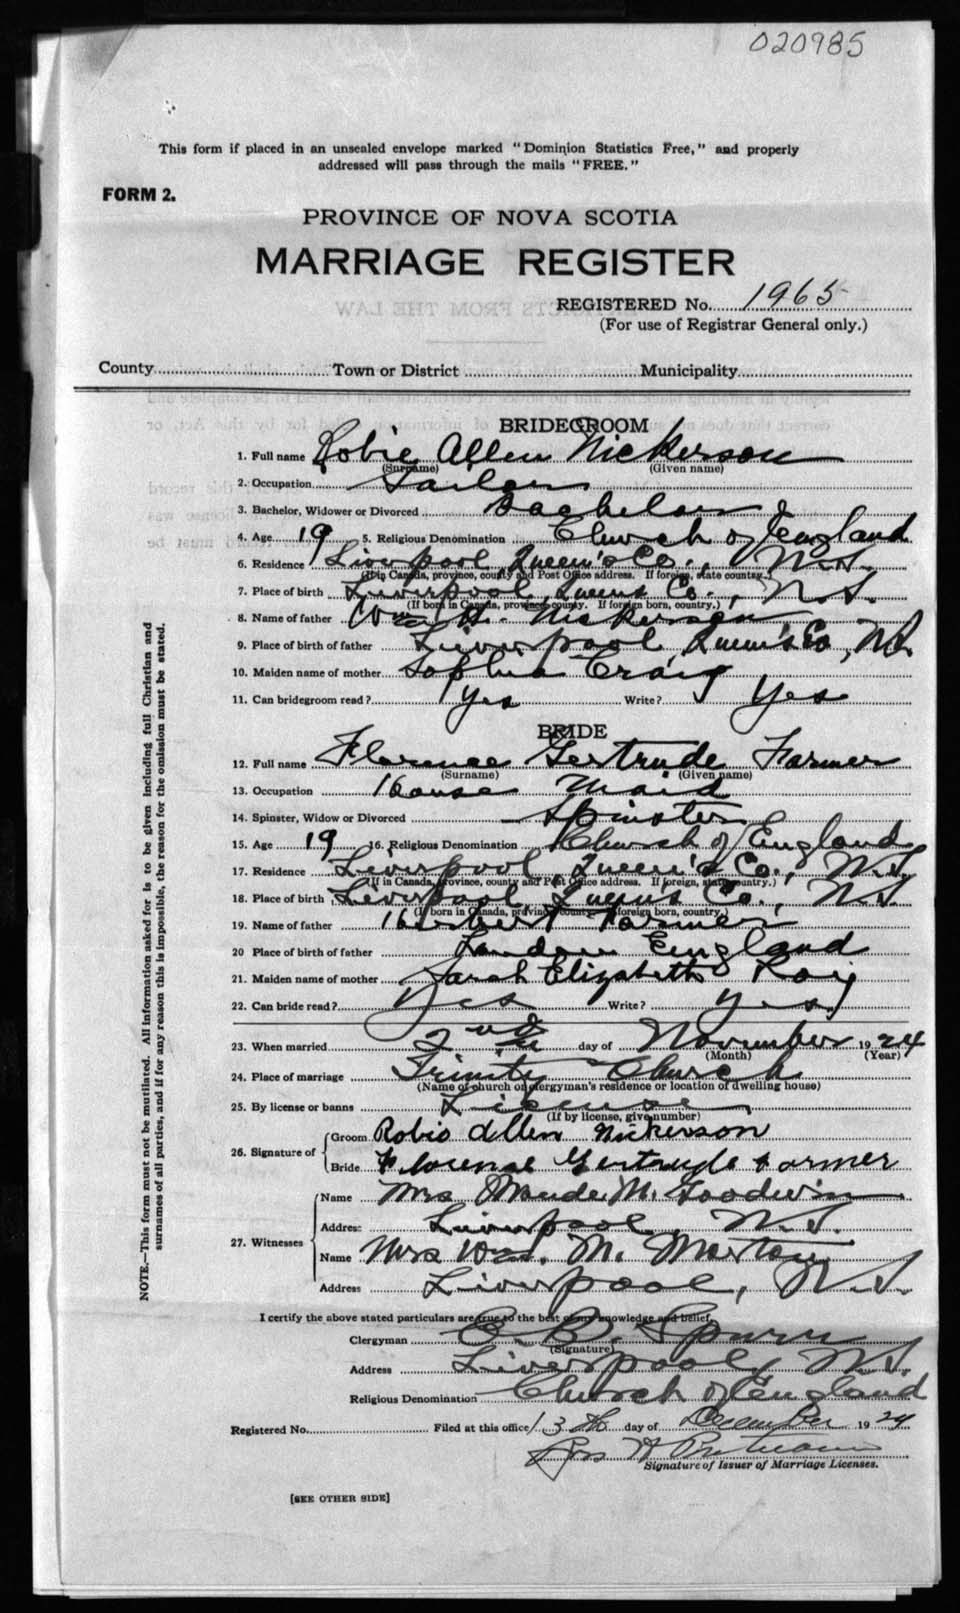 020985
This form if placed in an unsealed envelope marked "Dominion Statistics Free," and properly
addressed will pass through the mails "FREE."
FORM 2.
PROVINCE OF NOVA SCOTIA
MARRIAGE REGISTER
REGISTERED No. 1965
(For use of Registrar General only.)
County Town or District Municipality
BRIDEGROOM
1. Full name Robie Allen Nickerson
(Surname) (Given name)
2. Occupation
3. Bachelor, Widower or Divorced Bachelor
4. Age 19 5. Religious Denomination Church of England
6. Residence Liverpool, Queen's Co., N.S.
(If in Canada, province, county and Post Office address. If foreign, state country.)
7. Place of birth Liverpool, Queen's Co., N.S.
(If born in Canada, province, county. If foreign born, country.)
8. Name of father Wm H. Nickerson
9. Place of birth of father Liverpool, Queen's Co, N.S.
10. Maiden name of mother Sophia Craig
11. Can bridegroom read? Yes Write? Yes
BRIDE
12. Full name Florence Gertrude Farmer
(Surname) (Given name)
13. Occupation House Maid
14. Spinster, Widow or Divorced Spinster
15. Age 19 16. Religious Denomination Church of England
17. Residence Liverpool, Queen's Co., N.S.
(If in Canada, province, county and Post Office address. If foreign, state country.)
18. Place of birth Liverpool, Queen's Co., N.S.
(If born in Canada, province, county. If foreign born, country.)
19. Name of father Herbert Farmer
20 Place of birth of father London England
21. Maiden name of mother Sarah Elizabeth
22. Can bride read? Yes Write? Yes
23. When married 2nd day of November 1924
(Month) (Year)
24. Place of marriage Trinity Church
(Name of church or clergyman's residence or location of dwelling house)
25. By license or banns License
(If by license, give number)
26. Signature of Groom Robie Allen Nickerson
Bride Florence Gertrude Farmer
27. Witnesses Name Mrs Maude M. Goodwin
Address Liverpool, N.S.
Name Mrs Wm. M. Morton
Address Liverpool, N.S.
I certify the above stated particulars are true to the best of my knowledge and belief.
Clergyman C. B. Spurr
(Signature)
Address Liverpool, N.S.
Religious Denomination Church of England
Registered No. Filed at this office 13th day of December 1924
Signature of Issuer of Marriage Licenses.
[SEE OTHER SIDE]
NOTE.—This form must not be mutilated. All information asked for is to be given including full Christian and
surnames of all parties, and if for any reason this is impossible, the reason for the omission must be stated.